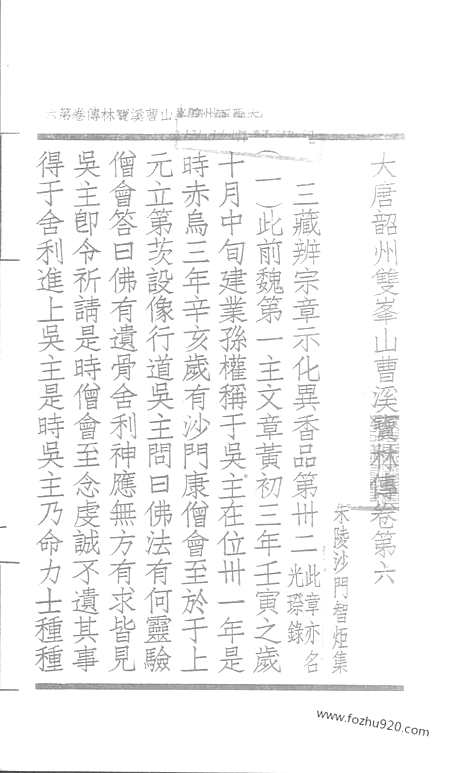 大唐韶州雙峯山曹溪寶林傳卷第六
朱陵沙門智炬集
三藏辨宗章示化異香品第卅二此章亦名光璨錄
(一)此前魏第一主文章黃初三年壬寅之歲
十月中旬建業孫權稱于吳主在位卅一年是
時赤烏三年辛亥歲有沙門康僧會至於于上
元立第茨設像行道吳主問曰佛法有何靈驗
僧會答曰佛有遺骨舍利神應無方有求皆見
吳主卽令祈請是時僧會至念虔誠不遺其事
得于舍利進上吳主是時吳主乃命力士種種
山曹溪寶林傳卷第六
www.fozhu920.com